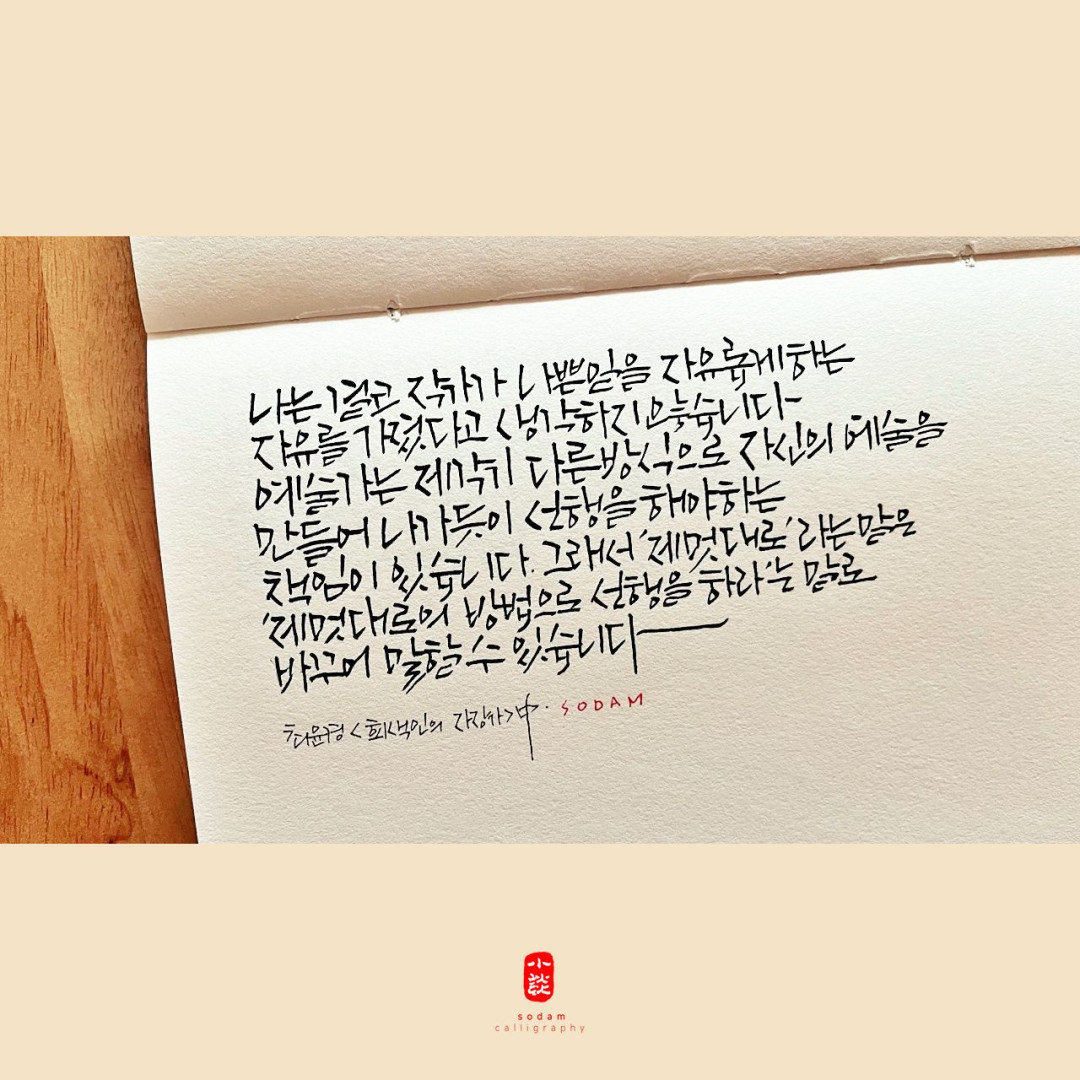 나는 결코 작가가 나쁜일을 자유롭게하는
자유를 가졌다고 생각하지않습니다-
예술가는 제각기 다른방식으로 자신의 예술을
만들어 나가듯이 선행을해야하는
책임이 있습니다. 그래서 '제멋대로'라는말은
'제멋대로의 방법으로 선행을 하라'는 말로
바꾸어 말할 수 있습니다
최윤경 <회색인의 자장가> 中. SODAM
小談
sodam
calligraphy